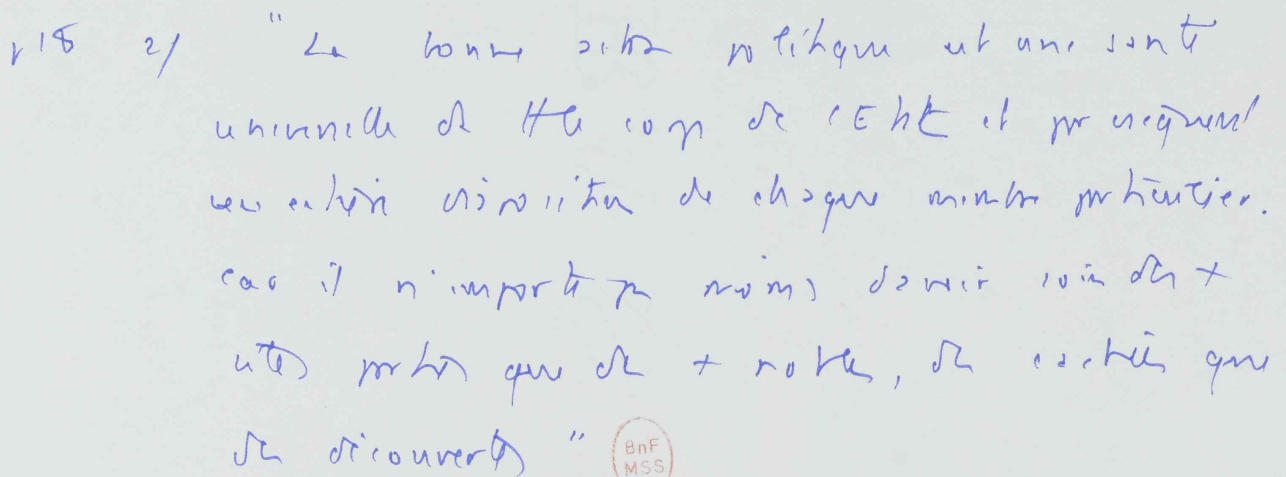 p18 2/ "La bonne politique est une santé
universelle de tt le corps de l'Etat et par conséquent
une entière disposition de chaque membre particulier.
car il n'importe pas moins d'avoir soin des +
utes parties que des + nobles, des cachées que
des découvertes"
BnF
MSS